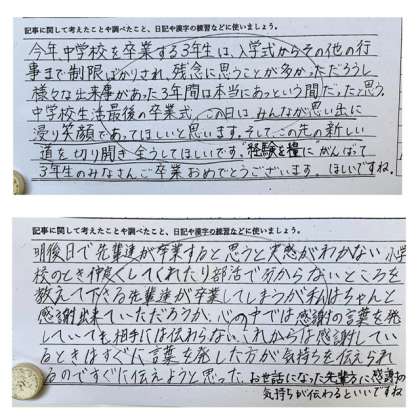 記事に関して考えたことや調べたこと、日記や漢字の練習などに使いましょう。
今年、中学校を卒業する3年生は、入学式からその他の行
事まで制限ばかりされ、残念に思うことが多かっただろうし
様々な出来事があった3年間は本当にあっという間だったと思う。
中学校生活最後の卒業式、この日はみんなが思い出に
浸り笑顔であってほしいと思います。そして、この先の新しい
道を切り開き全うしてほしいです。"経験を糧に"がんばって
3年生のみなさんご卒業おめでとうございます。ほしいですね。
記事に関して考えたことや調べたこと、日記や漢字の練習などに使いましょう。
明後日で先輩達が卒業すると思うと実感がわかない。小学
校のとき仲良くしてくれたり部活で分からないところを
教えて下さる先輩達が卒業してしまうが私はちゃんと
感謝出来ていただろうか。心の中では感謝の言葉を発
していても相手には伝わらない。これからは感謝してい
るときはすぐに言葉を発した方が気持ちを伝えられ
るのですぐに伝えようと思った。お世話になった先輩方に感謝の
気持ちが伝わるといいですね